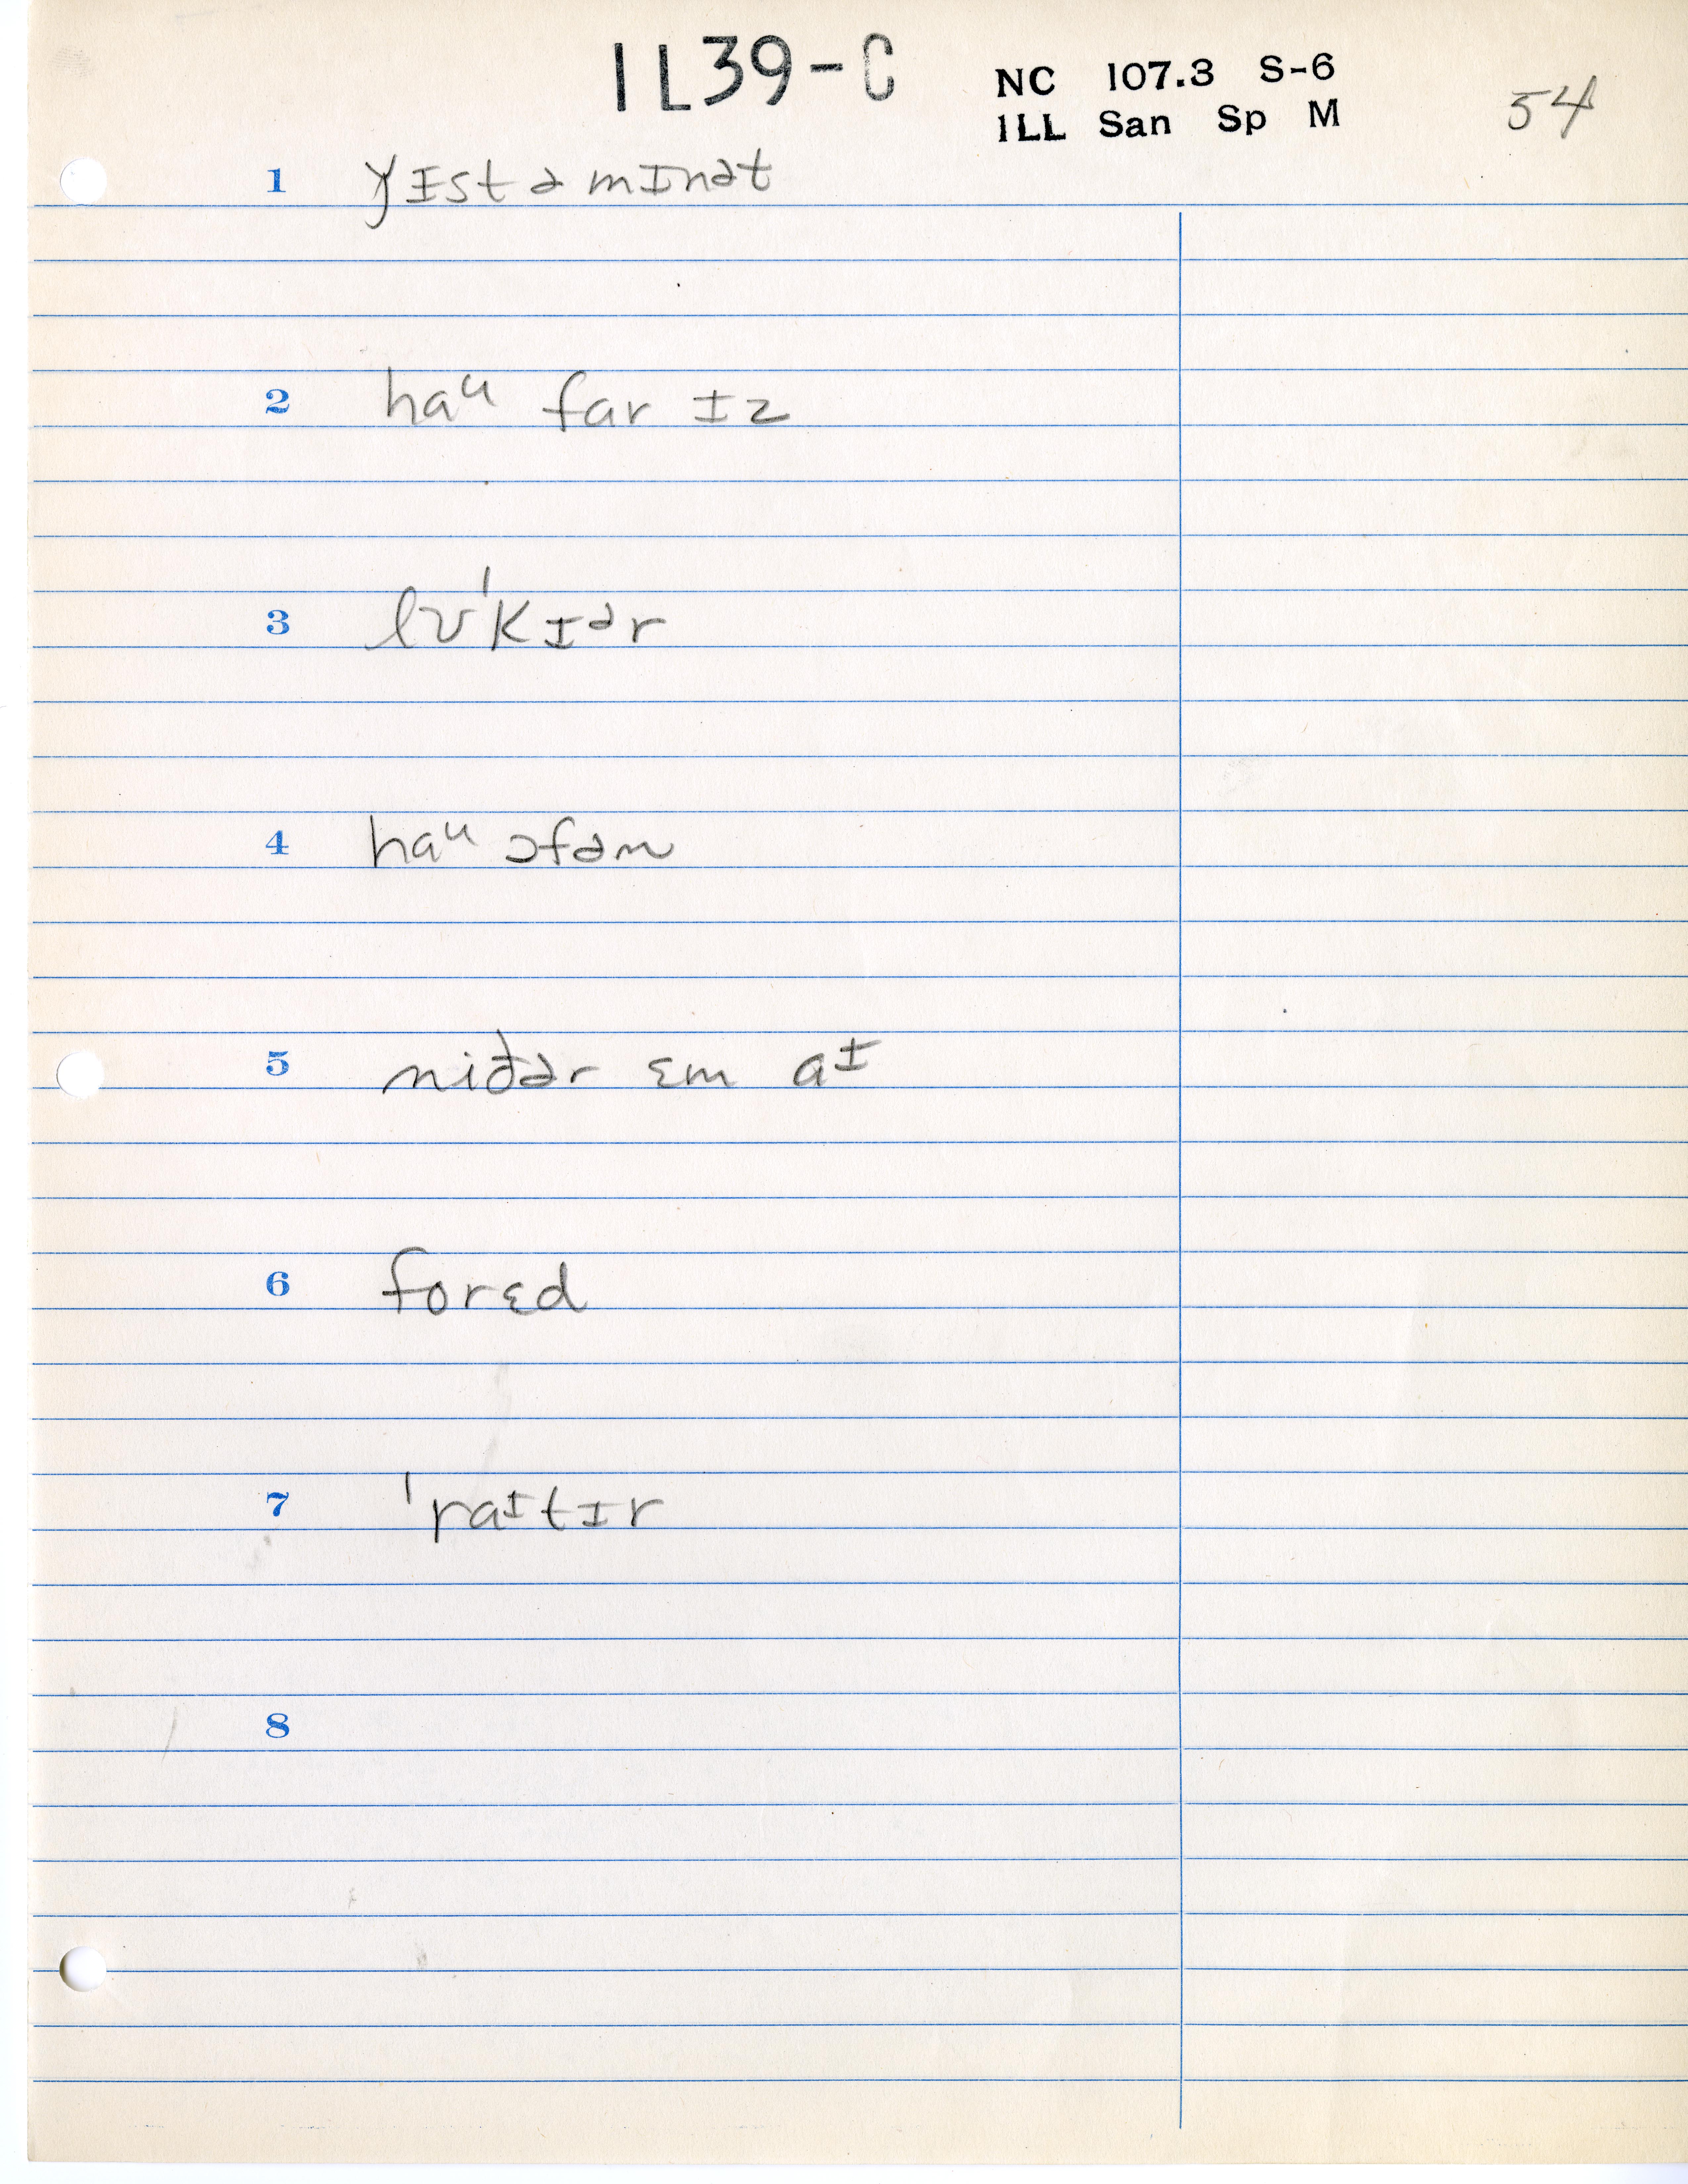 1L39-C
NC 107.3 S-6
ILL San Sp M
54
1 ɏɪst ə mɪnət
2 haᵘ far ɪz
3 lʊˈkɪər
4 haᵘ ɔfəm
5 niðər ɛm aᶦ
6 forɛd
7 ˈraᶦtɪr
8